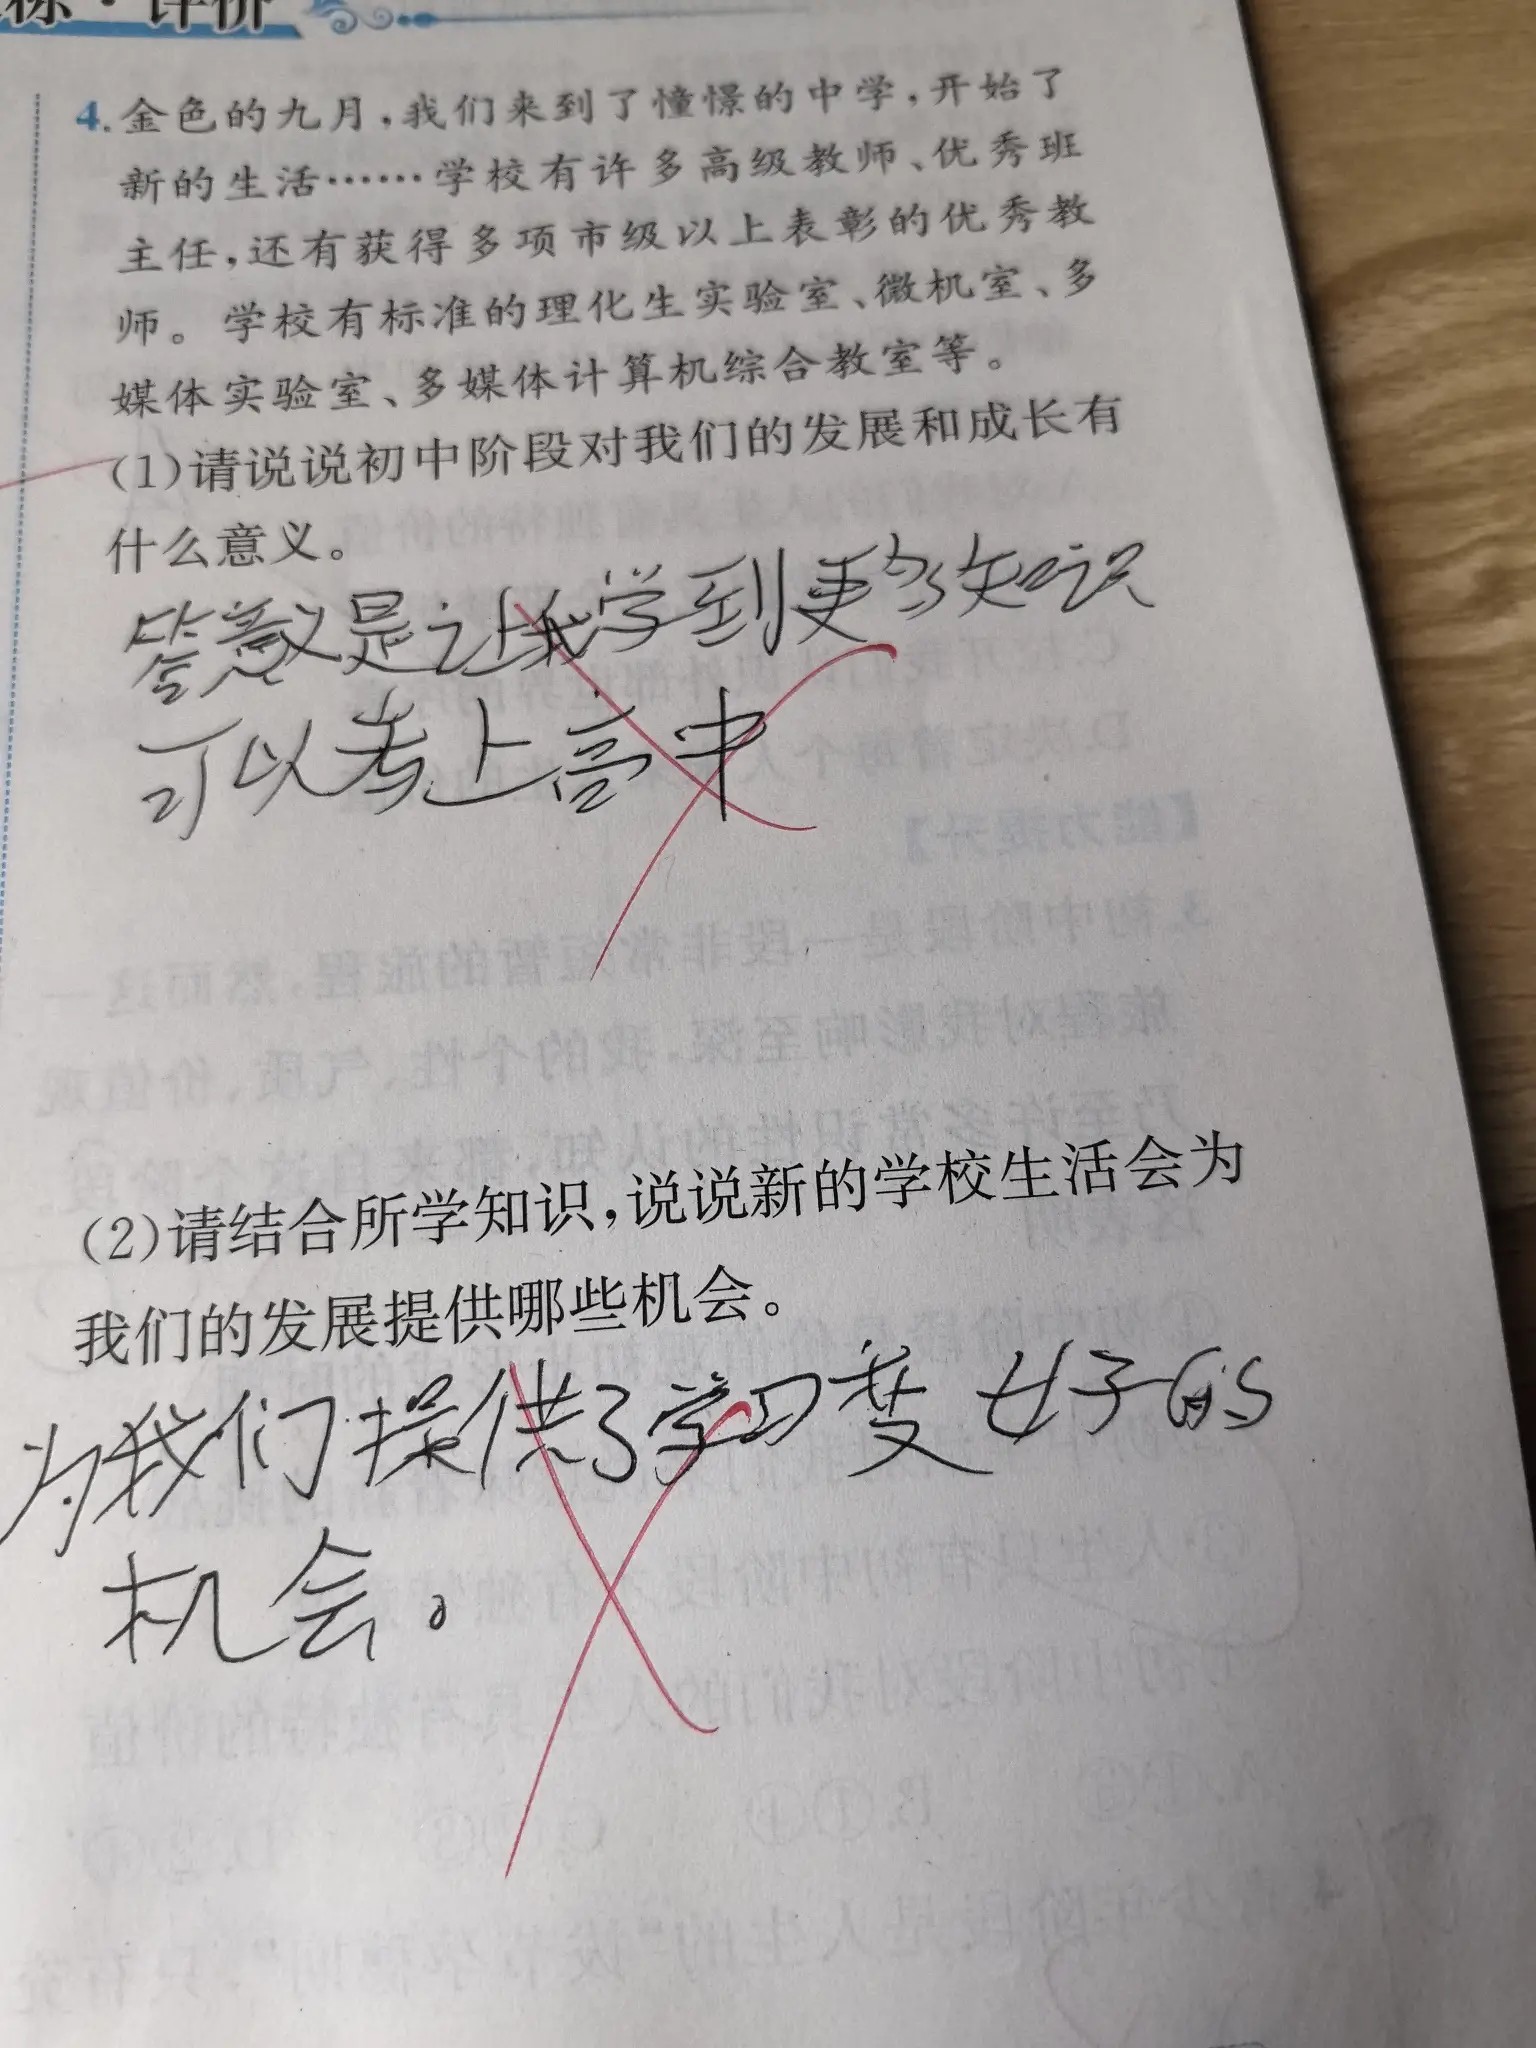 ·评价
4.金色的九月,我们来到了憧憬的中学,开始了
新的生活……学校有许多高级教师、优秀班
主任,还有获得多项市级以上表彰的优秀教
师。学校有标准的理化生实验室、微机室、多
媒体实验室、多媒体计算机综合教室等。
(1)请说说初中阶段对我们的发展和成长有
什么意义。
答意义是让我学到更多知识
可以考上高中
(2)请结合所学知识,说说新的学校生活会为
我们的发展提供哪些机会。
为我们提供了学习变好的
机会。